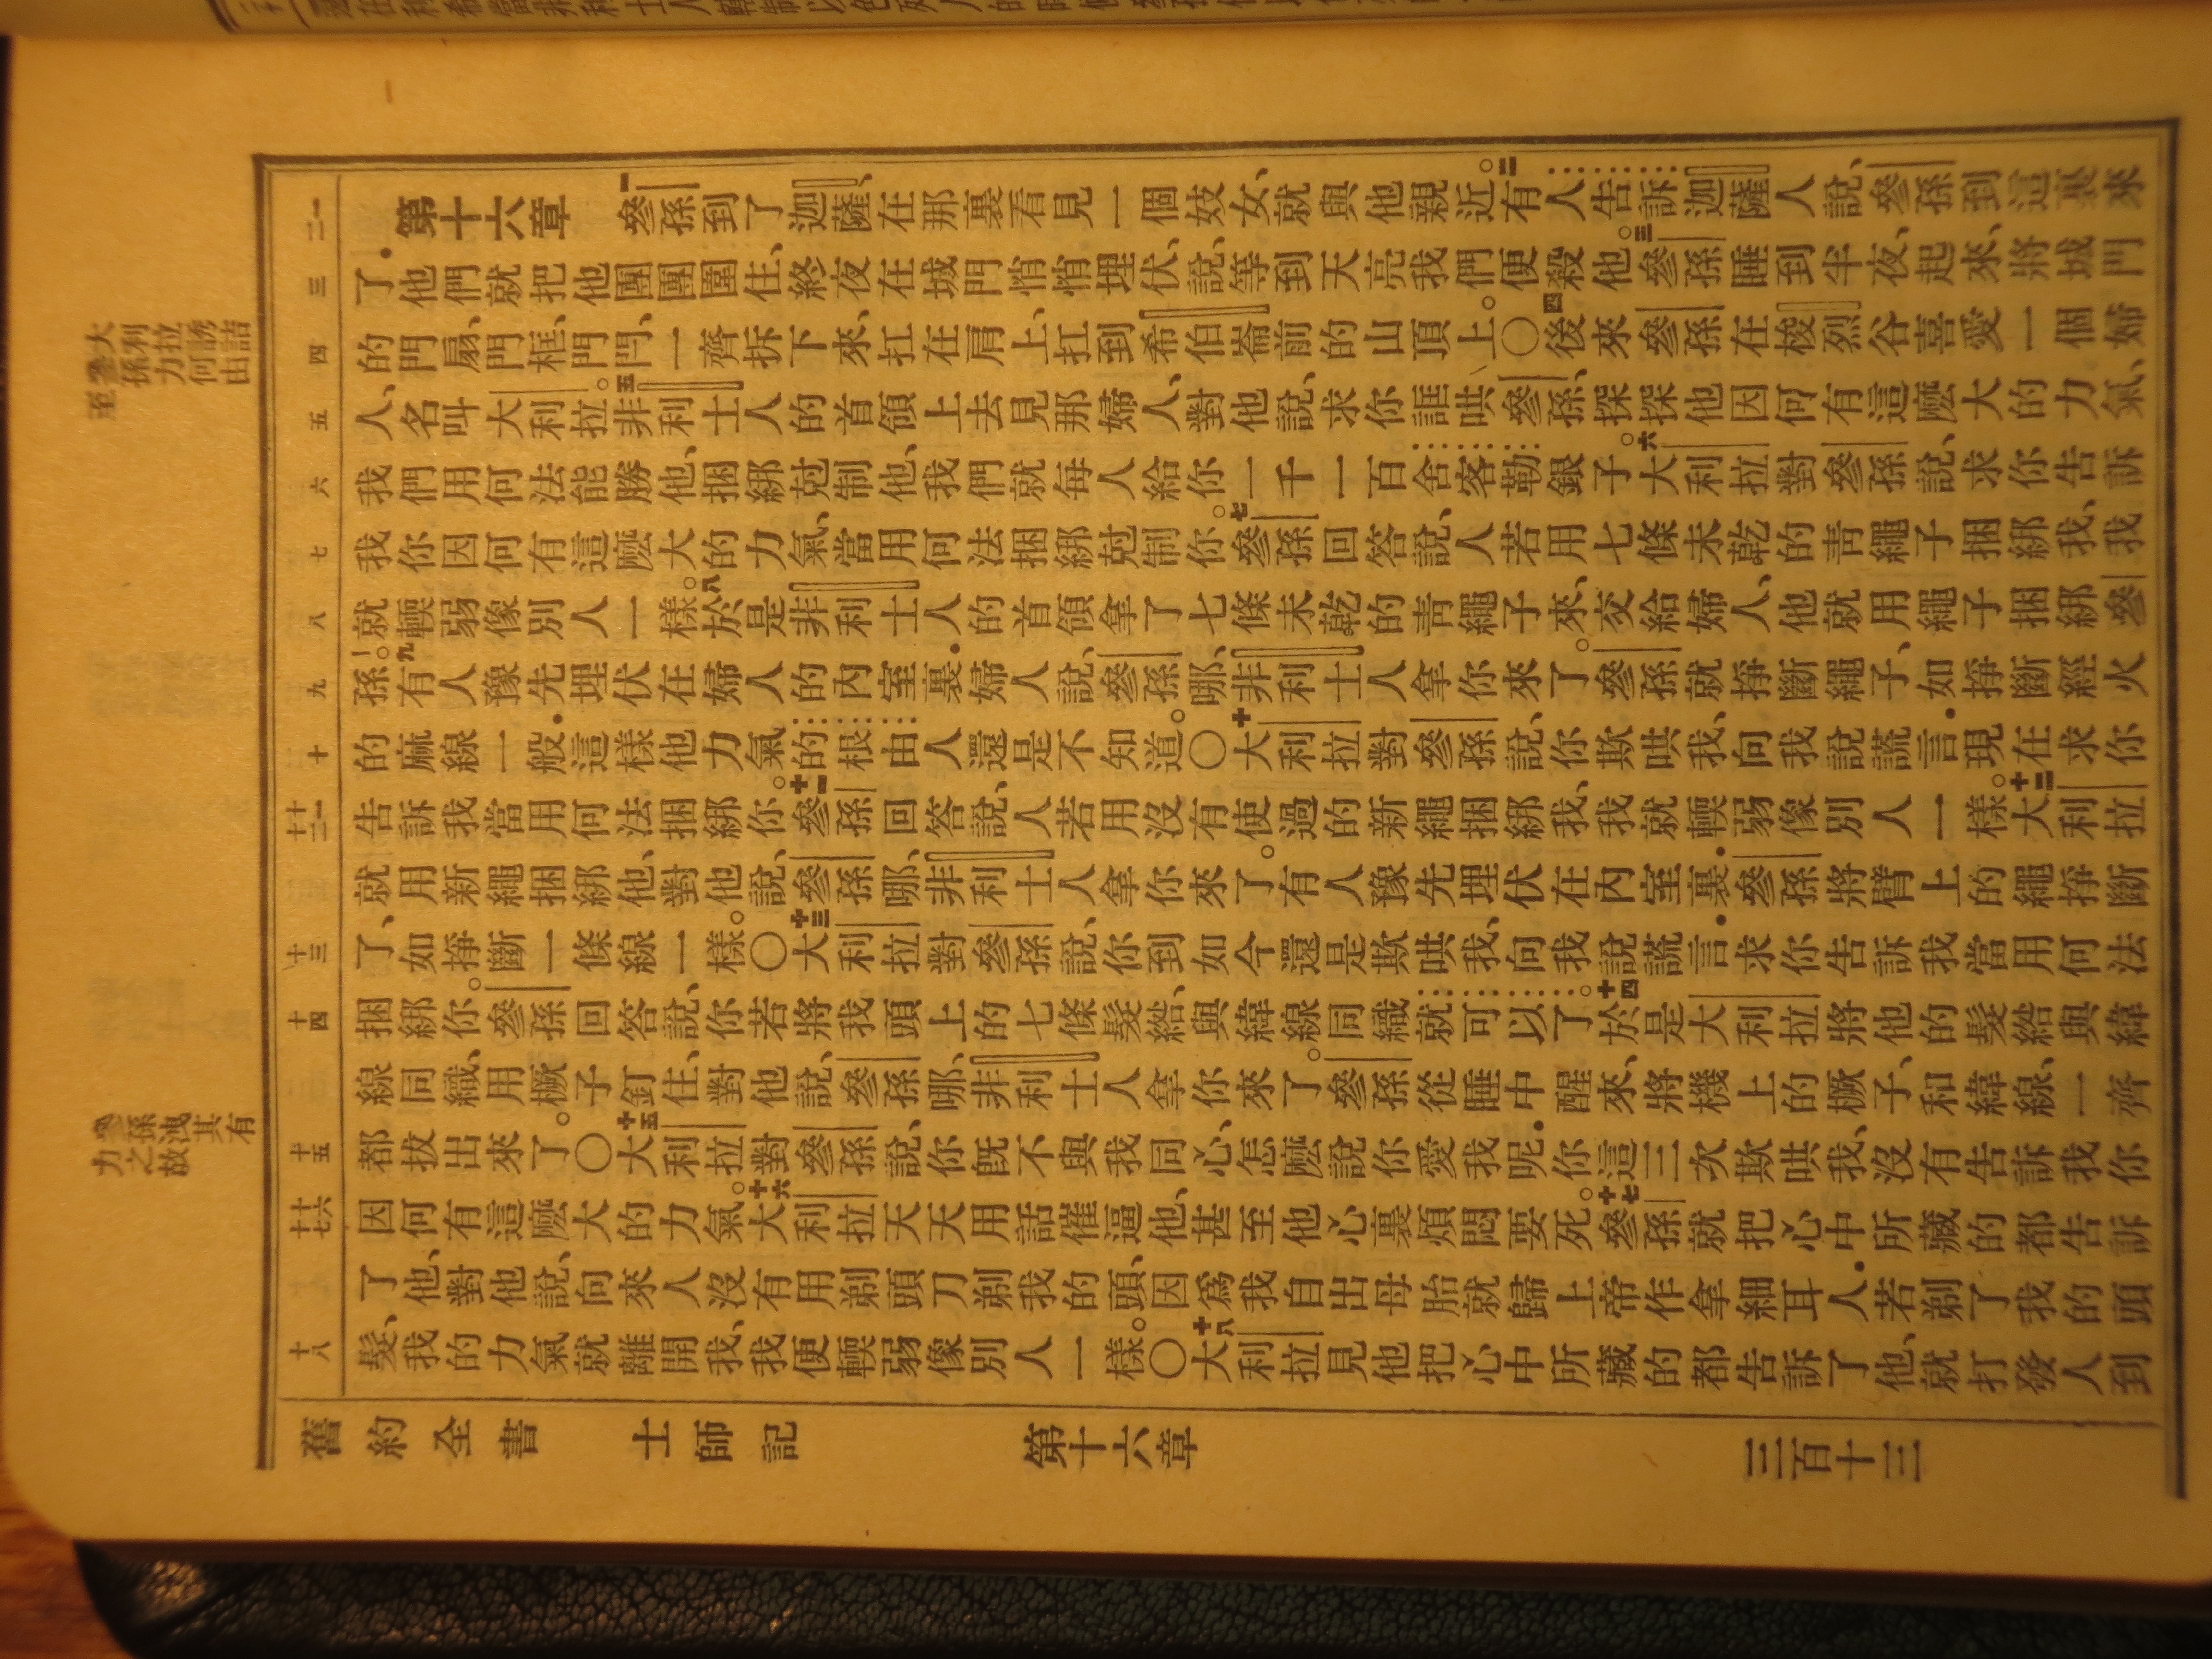 第十六章 一參孫到了迦薩、在那裏看見一個妓女、就與他親近。二有人告訴迦薩人說、參孫到這裏來
了．他們就把他團團圍住、終夜在城門悄悄埋伏、說、等到天亮我們便殺他。三參孫睡到半夜、起來、將城門
的門扇、門框、門閂、一齊拆下來、扛在肩上、扛到希伯崙前的山頂上。〇四後來參孫在梭烈谷喜愛一個婦
人、名叫大利拉。五非利士人的首領上去見那婦人、對他說、求你誆哄參孫、探探他因何有這麽大的力氣、
我們用何法能勝他、捆綁尅制他、我們就每人給你一千一百舍客勒銀子。六大利拉對參孫說、求你告訴
我、你因何有這麽大的力氣、當用何法捆綁尅制你。七參孫回答說、人若用七條未乾的靑繩子捆綁我、我
就輭弱像別人一樣。八於是非利士人的首領拿了七條未乾的靑繩子來、交給婦人、他就用繩子捆綁參
孫。九有人豫先埋伏在婦人的內室裏．婦人說、參孫哪、非利士人拿你來了。參孫就掙斷繩子、如掙斷經火
的麻線一般．這樣他力氣的根由人還是不知道。〇十大利拉對參孫說、你欺哄我、向我說謊言．現在求你
告訴我當用何法捆綁你。十一參孫回答說、人若用沒有使過的新繩捆綁我、我就輭弱像別人一樣。十二大利拉
就用新繩捆綁他、對他說、參孫哪、非利士人拿你來了。有人豫先埋伏在內室裏．參孫將臂上的繩掙斷
了、如掙斷一條線一樣。〇十三大利拉對參孫說、你到如今還是欺哄我、向我說謊言．求你告訴我當用何法
捆綁你。參孫回答說、你若將我頭上的七條髮綹、與緯線同織就可以了。十四於是大利拉將他的髮綹與緯
線同織、用橛子釘住、對他說、參孫哪、非利士人拿你來了。參孫從睡中醒來、將機上的橛子、和緯線、一齊
都拔出來了。〇十五大利拉對參孫說、你旣不與我同心、怎麽說你愛我呢．你這三次欺哄我、沒有告訴我你
因何有這麽大的力氣。十六大利拉天天用話催逼他、甚至他心裏煩悶要死。十七參孫就把心中所藏的都告訴
了他、對他說、向來人沒有用剃頭刀剃我的頭、因爲我自出母胎就歸上帝作拿細耳人．若剃了我的頭
髮、我的力氣就離開我、我便輭弱像別人一樣。〇十八大利拉見他把心中所藏的都告訴了他、就打發人到
一
二
三
四
五
六
七
八
九
十
十一
十二
十三
十四
十五
十六
十七
十八
大利拉誘詰
參孫力何由
至
參孫洩其有
力之故
舊約全書 士師記 第十六章 三百十三